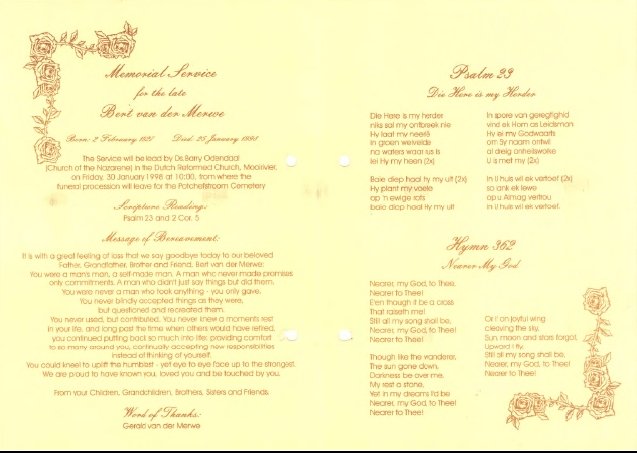 Memorial Service
for the late
Bert van der Merwe
Born: 2 February 1927 Died: 25 January 1998
The Service will be lead by Ds.Barry Odendaal
(Church of the Nazarene) in the Dutch Reformed Church, Mooirivier,
on Friday, 30 January 1998 at 10:00, from where the
funeral procession will leave for the Potchefstroom Cemetery
Scripture Reading:
Psalm 23 and 2 Cor. 5
Message of Bereavement:
It is with a great feeling of loss that we say goodbye today to our beloved
Father, Grandfather, Brother and Friend, Bert van der Merwe:
You were a man's man, a self-made man. A man who never made promises
only commitments. A man who didn't just say things but did them.
You were never a man who took anything - you only gave,
You never blindly accepted things as they were,
but questioned and recreated them.
You never used, but contributed. You never knew a moments rest
in your life, and long past the time when others would have retired,
you continued putting back so much into life: providing comfort
to so many around you, continually accepting new responsibilities
instead of thinking of yourself.
You could kneel to uplift the humblest - yet eye to eye face up to the strongest.
We are proud to have known you, loved you and be touched by you.
From your Children, Grandchildren, Brothers, Sisters and Friends.
Word of Thanks:
Gerald van der Merwe
Psalm 23
Die Here is my Herder
Die Here is my herder
niks sal my ontbreek nie
Hy laat my neerlê
in groen weivelde
na waters waar rus is
lei Hy my heen (2x)
Baie diep haal hy my uit (2x)
Hy plant my voete
op 'n ewige rots
baie diep haal Hy my uit
In spore van geregtigheid
vind ek Hom as Leidsman
Hy lei my Godwaarts
om Sy naam ontwil
al dreig doodheidswolke
U is met my (2x)
In U huis wil ek vertoef (2x)
so ank ek lewe
op U Almag vertrou
In U huis wil ek vertoef.
Hymn 362
Nearer My God
Nearer, my God, to Thee,
Nearer to Thee!
E'en though it be a cross
That raiseth me!
Still all my song shall be,
Nearer, my God, to Thee!
Nearer to Thee!
Though like the wanderer,
The sun gone down,
Darkness be over me,
My rest a stone,
Yet in my dreams I'd be
Nearer, my God, to Thee!
Nearer to Thee!
Or if on joyful wing
cleaving the sky,
Sun, moon and stars forgot,
Upward I fly,
Still all my song shall be,
Nearer, my God, to Thee!
Nearer to Thee!